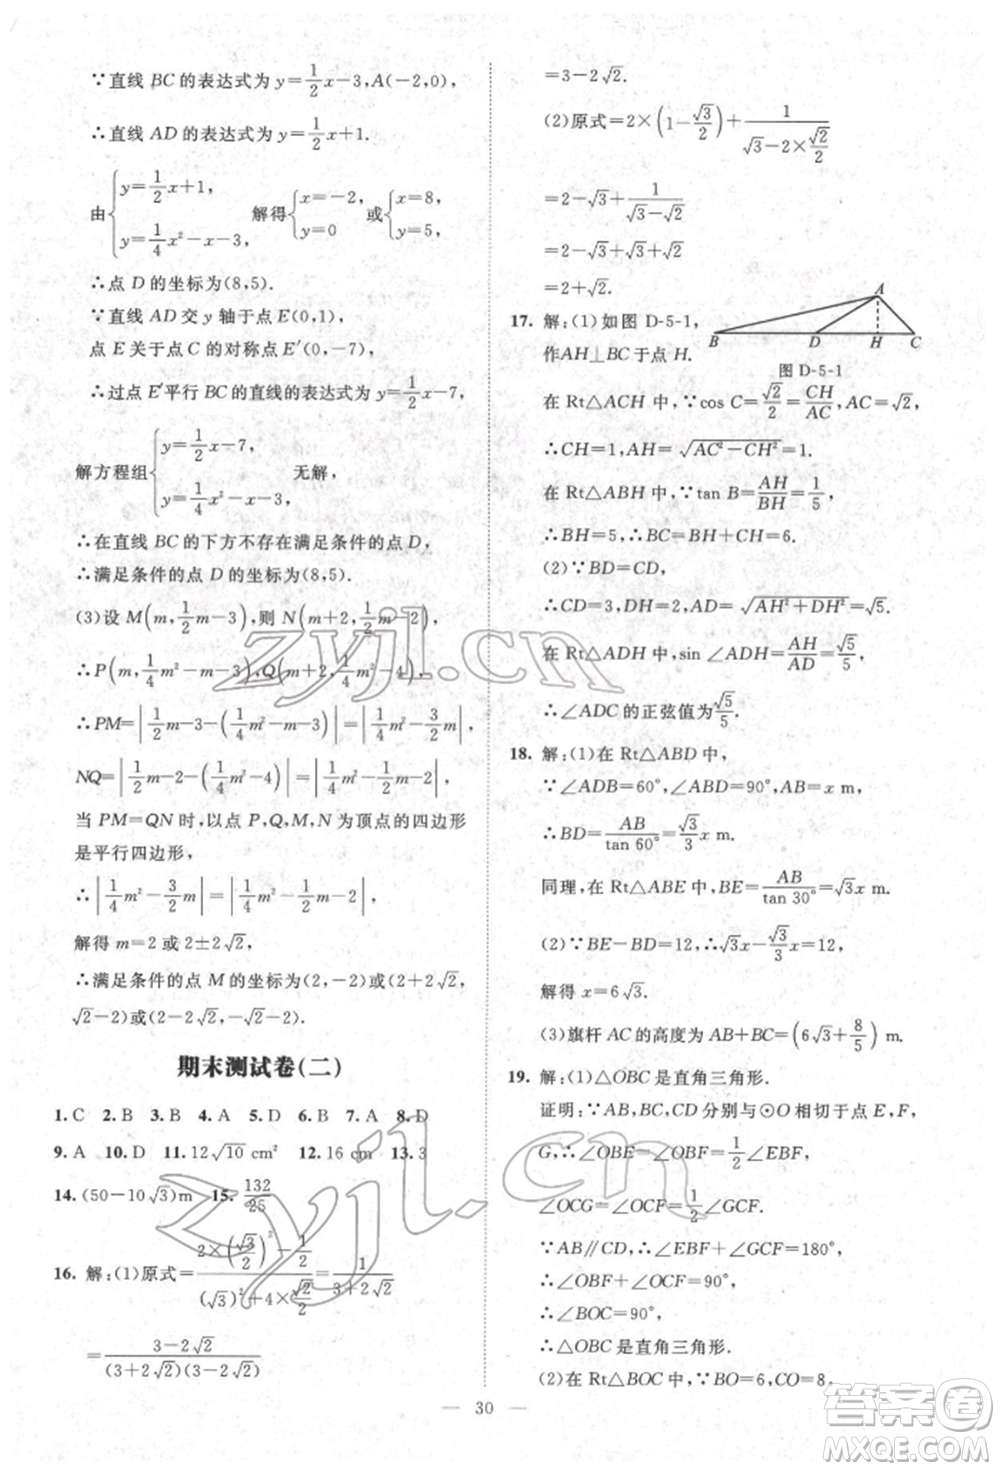 ∵直线 BC 的表达式为 y=1/2x-3,A(-2,0),
∴直线 AD 的表达式为 y=1/2x+1.
由{y=1/2x+1, y=1/4x²-x-3, 解得{x=-2, y=0 或{x=8, y=5.
∴点 D 的坐标为(8,5).
∵直线 AD 交 y 轴于点 E(0,1),
点 E 关于点 C 的对称点 E′(0,-7),
∴过点 E′平行 BC 的直线的表达式为 y=1/2x-7,
解方程组{y=1/2x-7, y=1/4x²-x-3, 无解,
∴在直线 BC 的下方不存在满足条件的点 D,
∴满足条件的点 D 的坐标为(8,5).
(3)设 M(m,1/2m-3),则 N(m+2,1/2m-2),
∴P(m,1/4m²-m-3),Q(m+2,1/4m²-4),
∴PM=|1/2m-3-(1/4m²-m-3)|=|1/4m²-3/2m|,
NQ=|1/2m-2-(1/4m²-4)|=|1/4m²-1/2m-2|,
当 PM=QN 时,以点 P,Q,M,N 为顶点的四边形
是平行四边形,
∴|1/4m²-3/2m|=|1/4m²-1/2m-2|,
解得 m=2 或 2±2√2,
∴满足条件的点 M 的坐标为(2,-2)或(2+2√2,
√2-2)或(2-2√2,-√2-2).
期末测试卷(二)
1.C 2.B 3.B 4.A 5.D 6.B 7.A 8.D
9.A 10.D 11.12√10 cm² 12.16 cm 13.3
14.(50-10√3)m 15.132/25
16.解:(1)原式=(2×(√3/2)²-1/2)/((√3)²+4×√2/2)=1/(3+2√2)
=(3-2√2)/((3+2√2)(3-2√2))
=3-2√2.
(2)原式=2×(1-√3/2)+1/(√3-2×√2/2)
=2-√3+1/(√3-√2)
=2-√3+√3+√2
=2+√2.
17.解:(1)如图 D-5-1,
作AH⊥BC于点 H.
A
B D H C
图 D-5-1
在 Rt△ACH 中,∵cos C=√2/2=CH/AC,AC=√2,
∴CH=1,AH=√(AC²-CH²)=1.
在 Rt△ABH 中,∵tan B=AH/BH=1/5,
∴BH=5,∴BC=BH+CH=6.
(2)∵BD=CD,
∴CD=3,DH=2,AD=√(AH²+DH²)=√5.
在 Rt△ADH 中,sin ∠ADH=AH/AD=√5/5,
∴∠ADC的正弦值为√5/5.
18.解:(1)在 Rt△ABD 中,
∵∠ADB=60°,∠ABD=90°,AB=x m,
∴BD=AB/tan 60°=√3/3x m.
同理,在 Rt△ABE 中,BE=AB/tan 30°=√3x m.
(2)∵BE-BD=12,∴√3x-√3/3x=12,
解得 x=6√3.
(3)旗杆 AC的高度为 AB+BC=(6√3+8/5) m.
19.解:(1)△OBC是直角三角形.
证明:∵AB,BC,CD 分别与⊙O 相切于点 E,F,
G,∴∠OBE=∠OBF=1/2∠EBF,
∠OCG=∠OCF=1/2∠GCF.
∵AB∥CD,∴∠EBF+∠GCF=180°,
∴∠OBF+∠OCF=90°,
∴∠BOC=90°,
∴△OBC是直角三角形.
(2)在 Rt△BOC 中,∵BO=6,CO=8,
30
zyjl.cn
zyjl.cn
答案圈
MXQE.COM